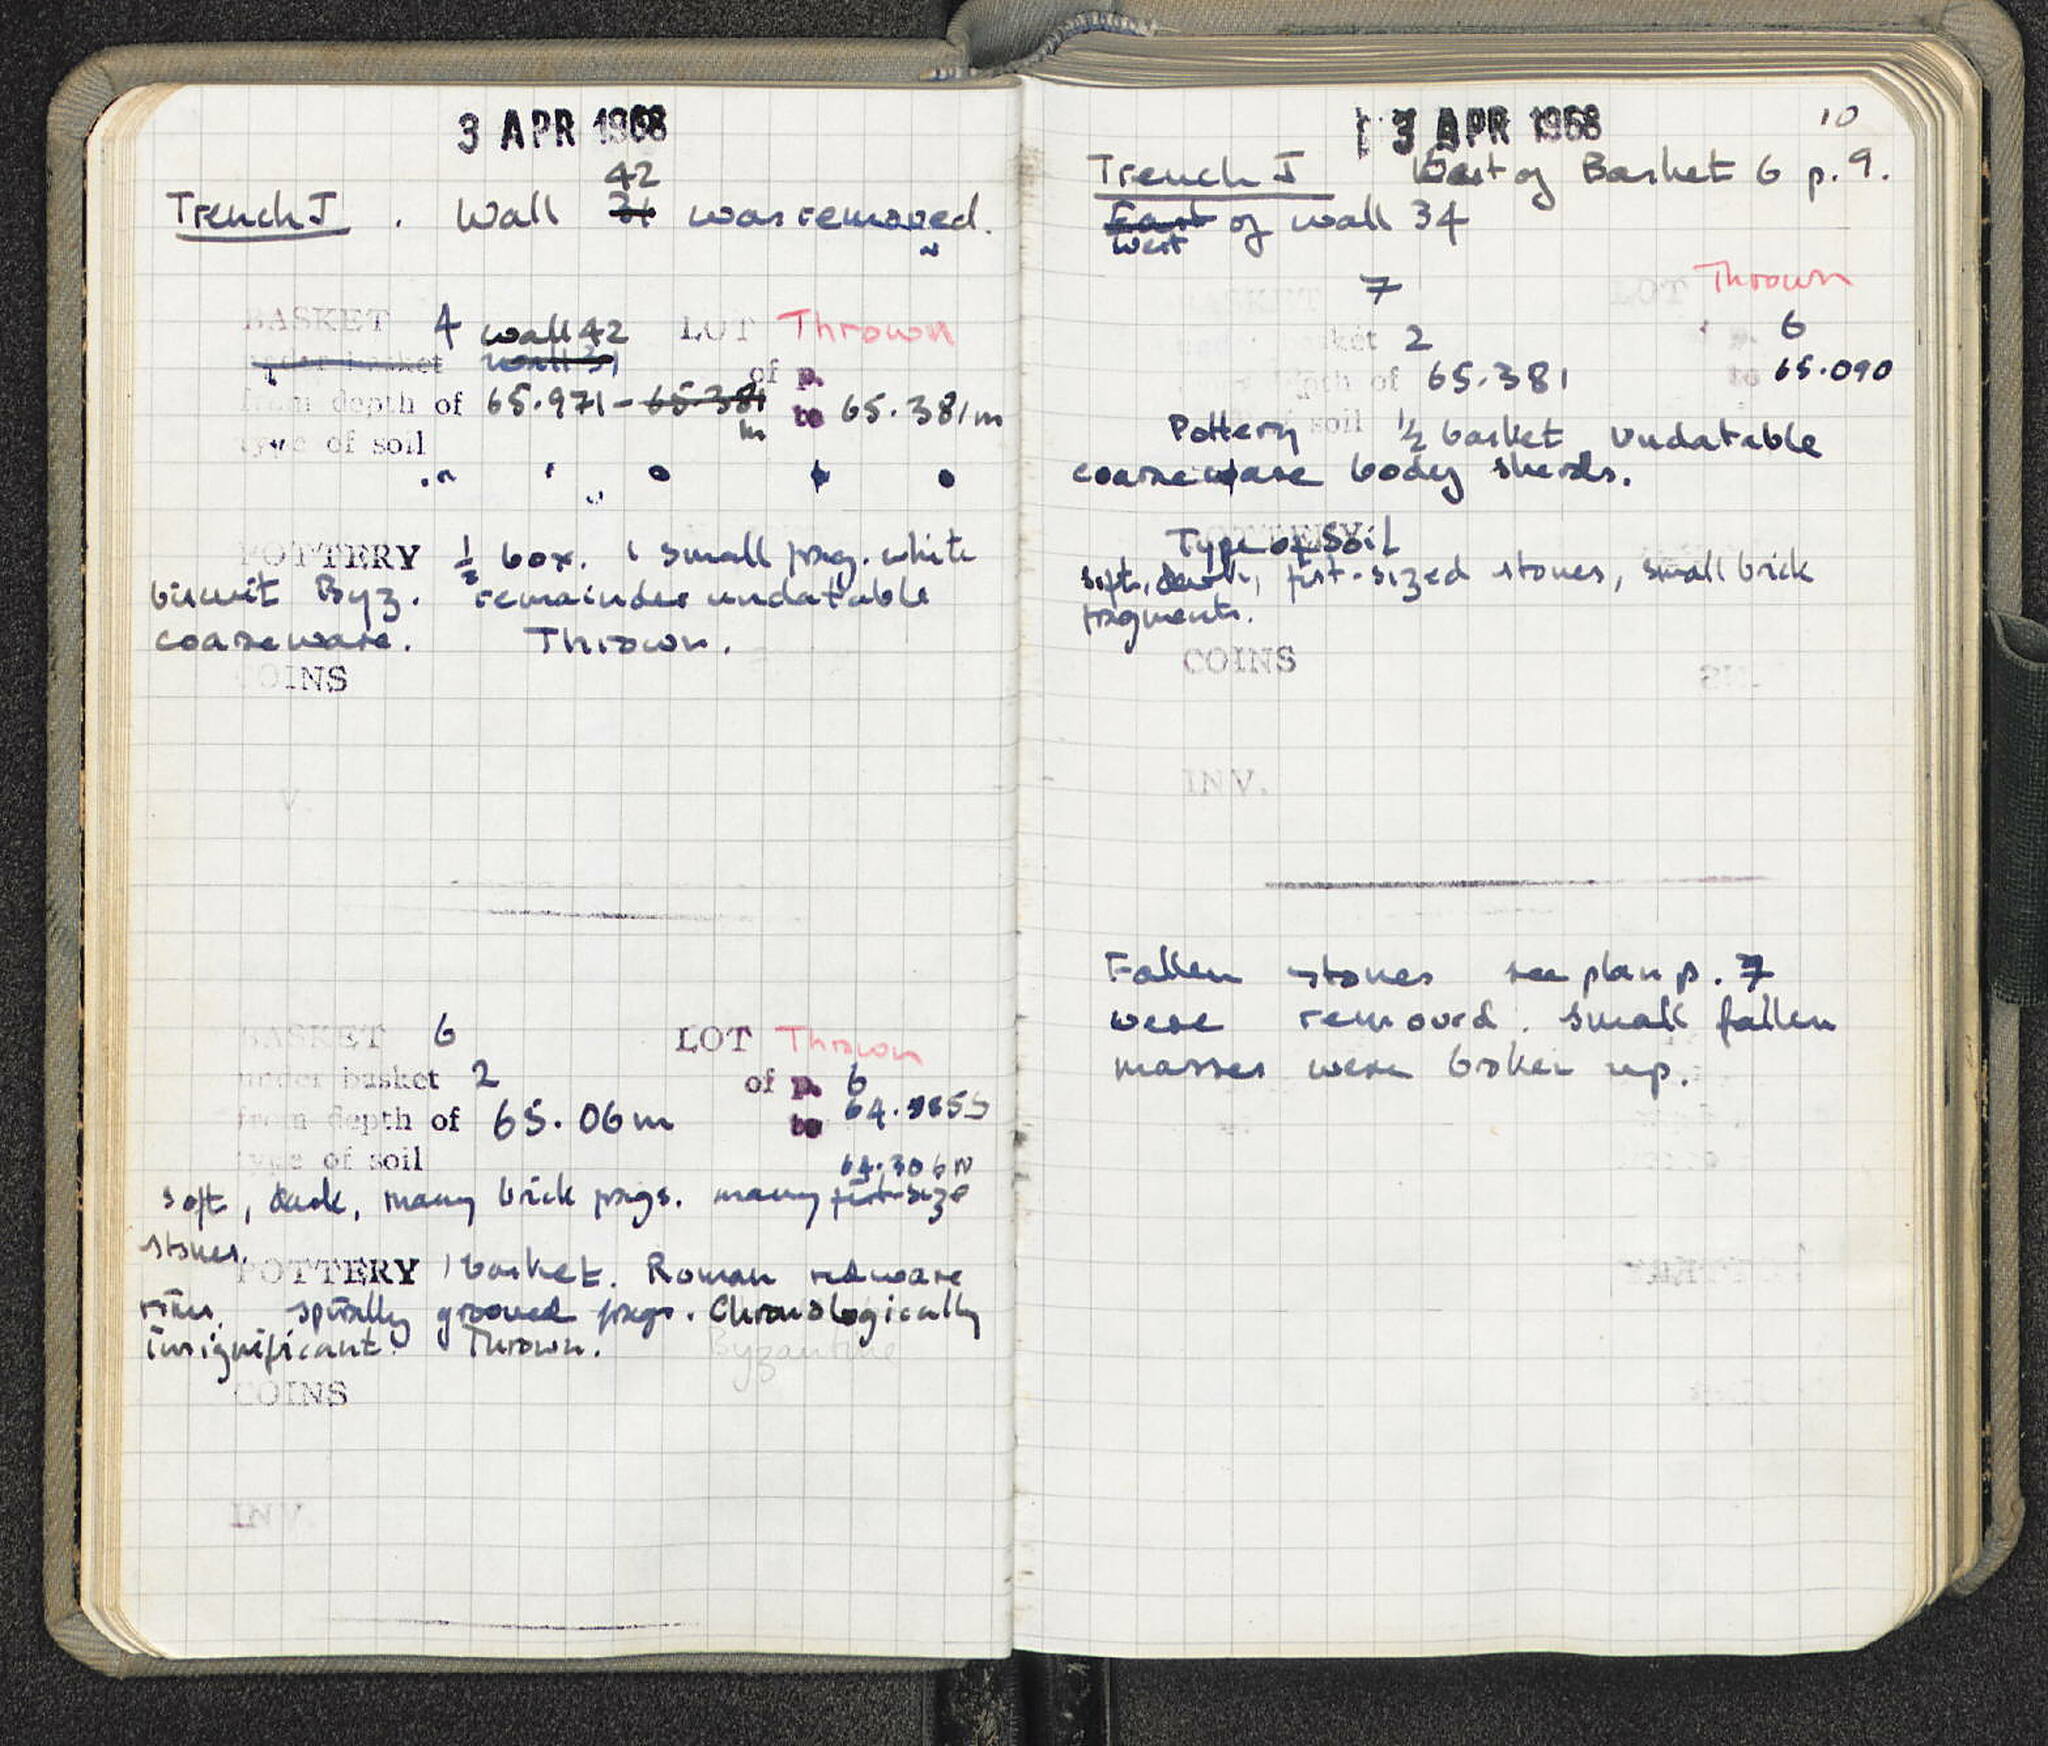 3 APR 1968
42
Trench J . Wall 31 was removed.
BASKET 4 wall 42 LOT Thrown
under basket wall 31 of p.
from depth of 65.971 - 65.381 m to 65.381m
type of soil
POTTERY 1/2 box. 1 small frag. white
biscuit Byz. remainder undatable
coarseware. Thrown.
COINS
BASKET 6 LOT Thrown
under basket 2 of p. 6
from depth of 65.06m to
type of soil 64.306N
soft, dark, many brick frags. many fist-size
stones.
POTTERY 1 basket. Roman redware
rims, spirally grooved frags. Chronologically
insignificant. Thrown. Byzantine
COINS
INV.
10
3 APR 1968
Trench J East of Basket 6 p. 9.
East of wall 34
West
7 LOT Thrown
basket 2 6
depth of 65.381 to 65.090
Pottery soil 1/2 basket undatable
coarseware body sherds.
Type of Soil
soft, dark, fist-sized stones, small brick
fragments.
COINS
INV.
Fallen stones see plan p. 7
were removed. Small fallen
masses were broken up.